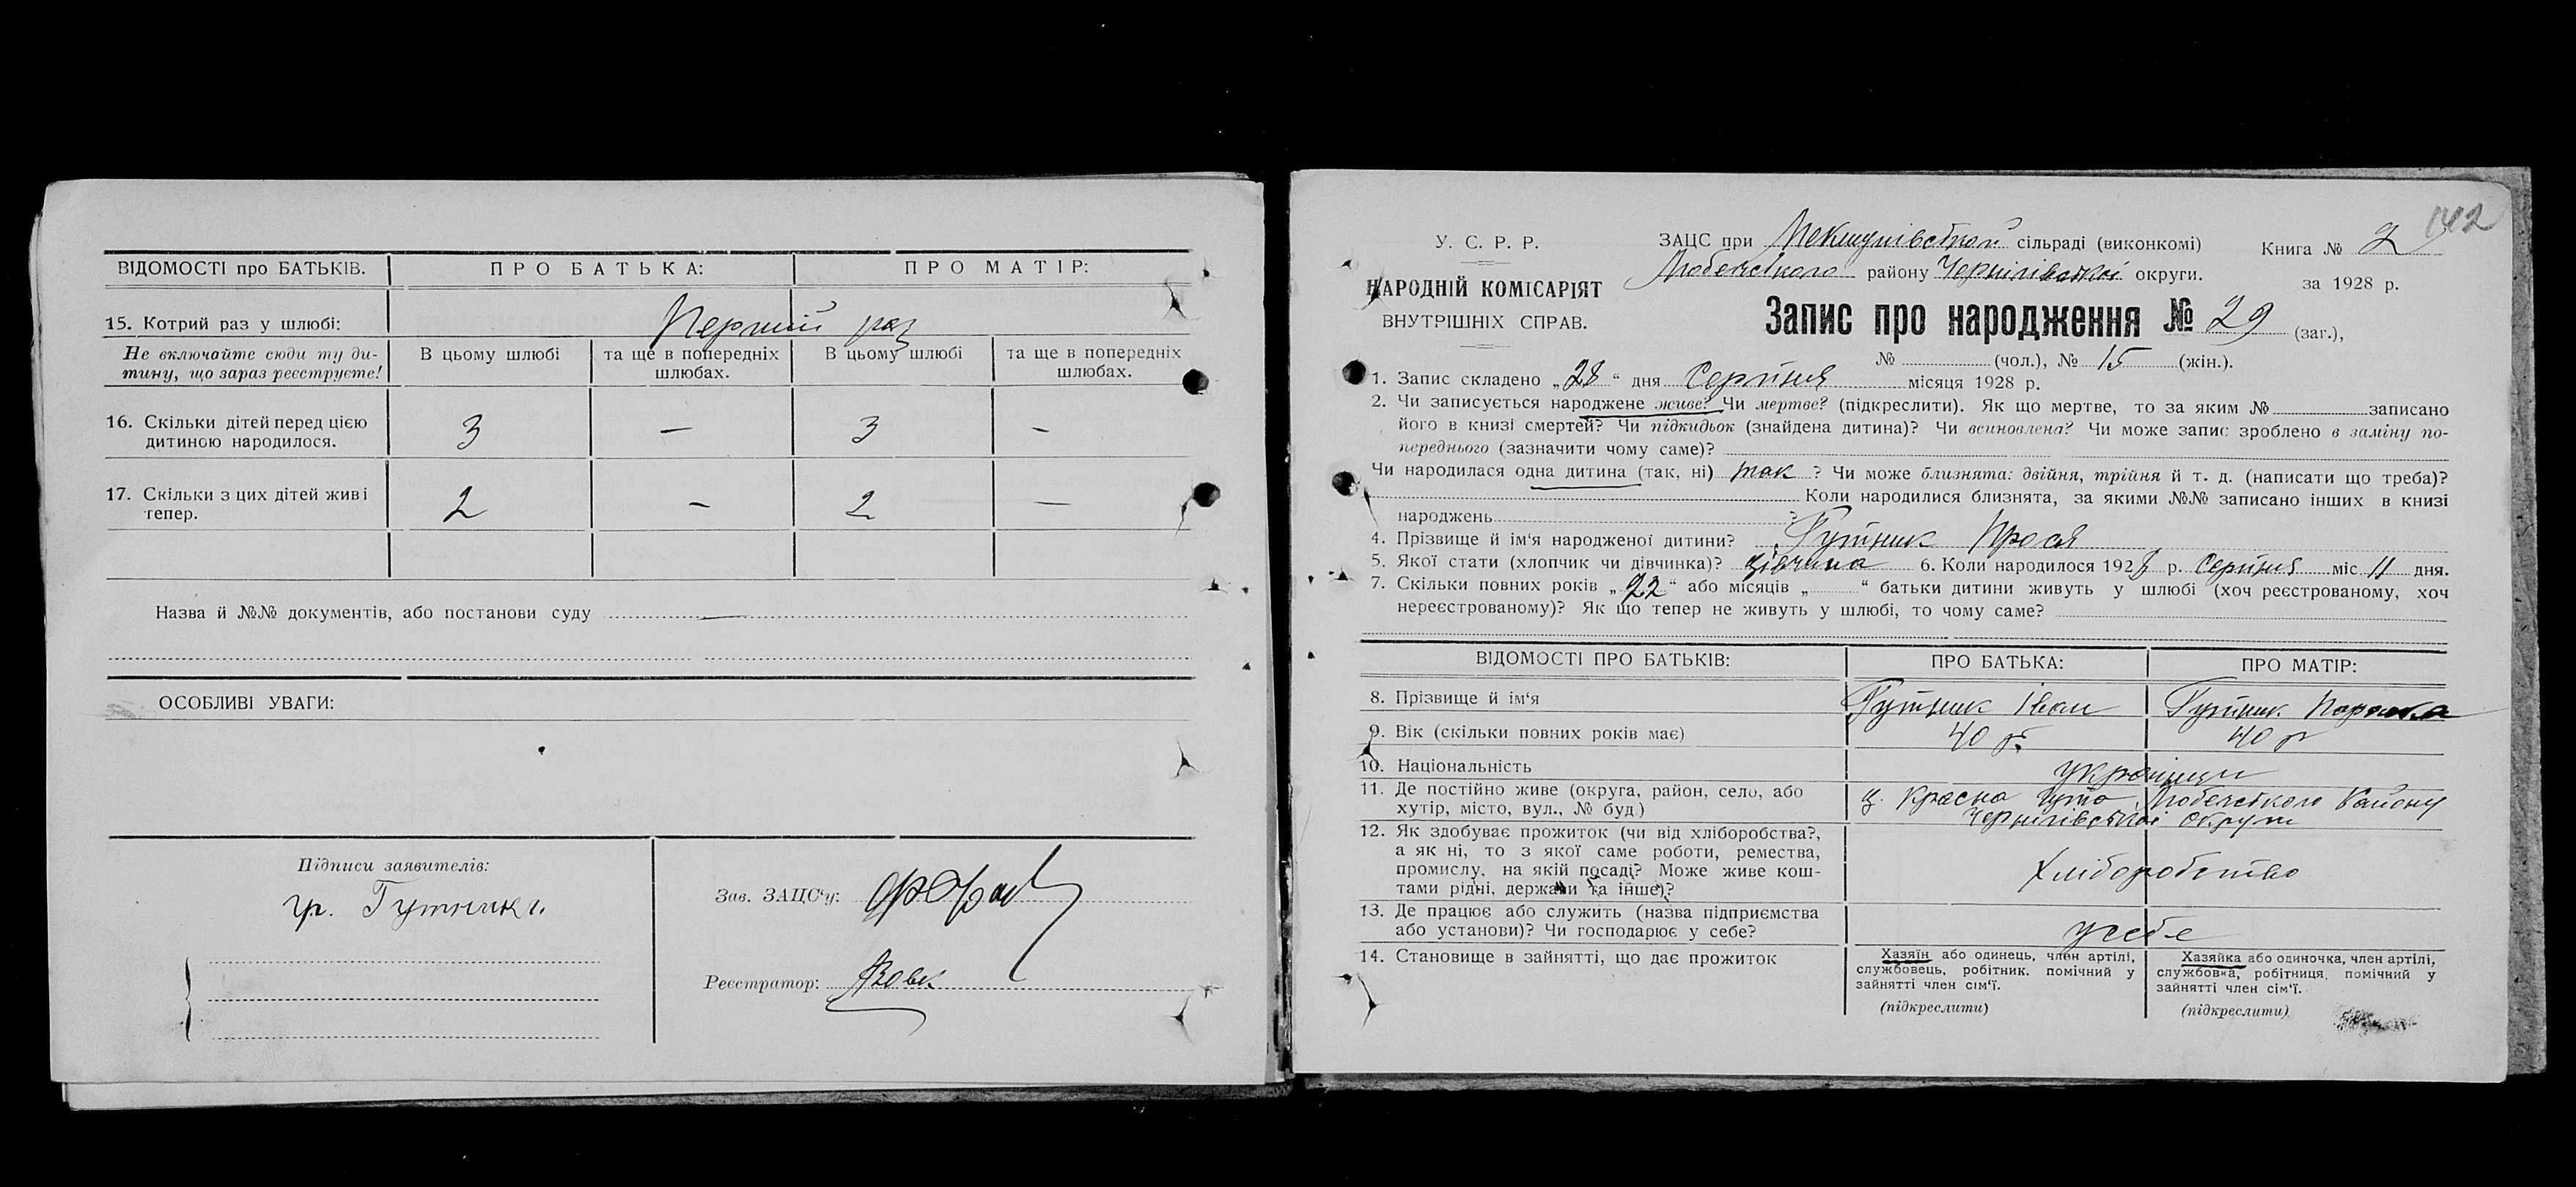 ВІДОМОСТІ про БАТЬКІВ.
ПРО БАТЬКА:
ПРО МАТІР:
15. Котрий раз у шлюбі:
Перший раз
Не включайте сюди ту ди-
тину, що зараз реєструєте!
В цьому шлюбі
та ще в попередніх
шлюбах.
В цьому шлюбі
та ще в попередніх
шлюбах.
16. Скільки дітей перед цією
дитиною народилося.
3
—
3
—
17. Скільки з цих дітей живі
тепер.
2
—
2
—
Назва й №№ документів, або постанови суду —
ОСОБЛИВІ УВАГИ:
Підписи заявителів:
гр. Гутник І.
Зав. ЗАЦС‘у:
Реєстратор: Вовк
142
У. С. Р. Р.
НАРОДНІЙ КОМІСАРІЯТ
ВНУТРІШНІХ СПРАВ.
ЗАЦС при сільраді (виконкомі)
Любечського району Чернігівської округи.
Книга № 2
за 1928 р.
Запис про народження № 29 (заг.),
№ (чол.), № 15 (жін.).
1. Запис складено „28“ дня Серпня місяця 1928 р.
2. Чи записується народжене живе? Чи мертве? (підкреслити). Як що мертве, то за яким № записано
його в книзі смертей? Чи підкидьок (знайдена дитина)? Чи всиновлена? Чи може запис зроблено в заміну по-
переднього (зазначити чому саме)?
Чи народилася одна дитина (так, ні) так ? Чи може близнята: двійня, трійня й т. д. (написати що треба)?
Коли народилися близнята, за якими №№ записано інших в книзі
народжень ?
4. Прізвище й ім‘я народженої дитини? Гутник Прося
5. Якої стати (хлопчик чи дівчинка)? дівчина 6. Коли народилось 1928 р. Серпня міс 11 дня.
7. Скільки повних років „22“ або місяців „ “ батьки дитини живуть у шлюбі (хоч реєстрованому, хоч
нереєстрованому)? Як що тепер не живуть у шлюбі, то чому саме?
ВІДОМОСТІ ПРО БАТЬКІВ:
ПРО БАТЬКА:
ПРО МАТІР:
8. Прізвище й ім‘я
Гутник Іван
Гутник Параска
9. Вік (скільки повних років має)
40 р.
40 р
10. Національність
українци
11. Де постійно живе (округа, район, село, або
хутір, місто, вул., № буд.)
Красна Гута Любечського Району
Чернігівської Округи
12. Як здобуває прожиток (чи від хліборобства?,
а як ні, то з якої саме роботи, ремества,
промислу, на якій посаді? Може живе кош-
тами рідні, держави та інше)?
Хліборобство
13. Де працює або служить (назва підприємства
або установи)? Чи господарює у себе?
у себе
14. Становище в зайнятті, що дає прожиток
Хазяїн або одинець, член артілі,
службовець, робітник. помічний у
зайнятті член сім‘ї.
(підкреслити)
Хазяйка або одиночка, член артілі,
службовка, робітниця, помічний у
зайнятті член сім‘ї.
(підкреслити)